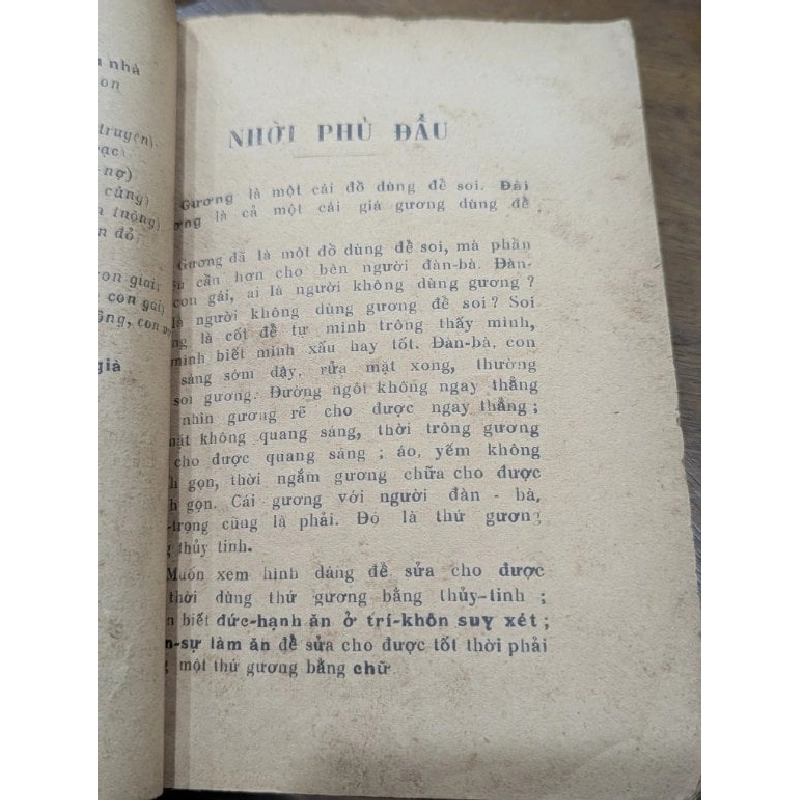 nhà
on
truyện)
ạc)
-nợ)
củng)
n tuọng)
n đỏ
con giai,
con gai)
ông, con
già
NHỜI PHÙ ĐẦU
Gương là một cái đồ dùng để soi. Đài
ơng là cả một cái giá gương dùng để
Gương đã là một đồ dùng để soi, mà phần
cần hơn cho bên người đàn-bà. Đàn-
con gái, ai là người không dùng gương ?
là người không dùng gương để soi ? Soi
ng là cốt để tự mình trông thấy mình,
mình biết mình xấu hay tốt. Đàn-bà, con
sáng sớm dậy, rửa mặt xong, thường
soi gương. Đường ngôi không ngay thẳng
nhìn gương rẽ cho được ngay thẳng ;
mặt không quang sáng, thời trông gương
cho được quang sáng ; áo, yếm không
h gọn, thời ngắm gương chữa cho được
h gọn. Cái gương với người đàn - bà,
-trọng cũng là phải. Đó là thứ gương
g thủy tinh.
Muốn xem hình dáng để sửa cho được
thời dùng thứ gương bằng thủy-tinh ;
n biết đức-hạnh ăn ở trí-khôn suy xét ;
n-sự làm ăn để sửa cho được tốt thời phải
g một thứ gương bằng chữ